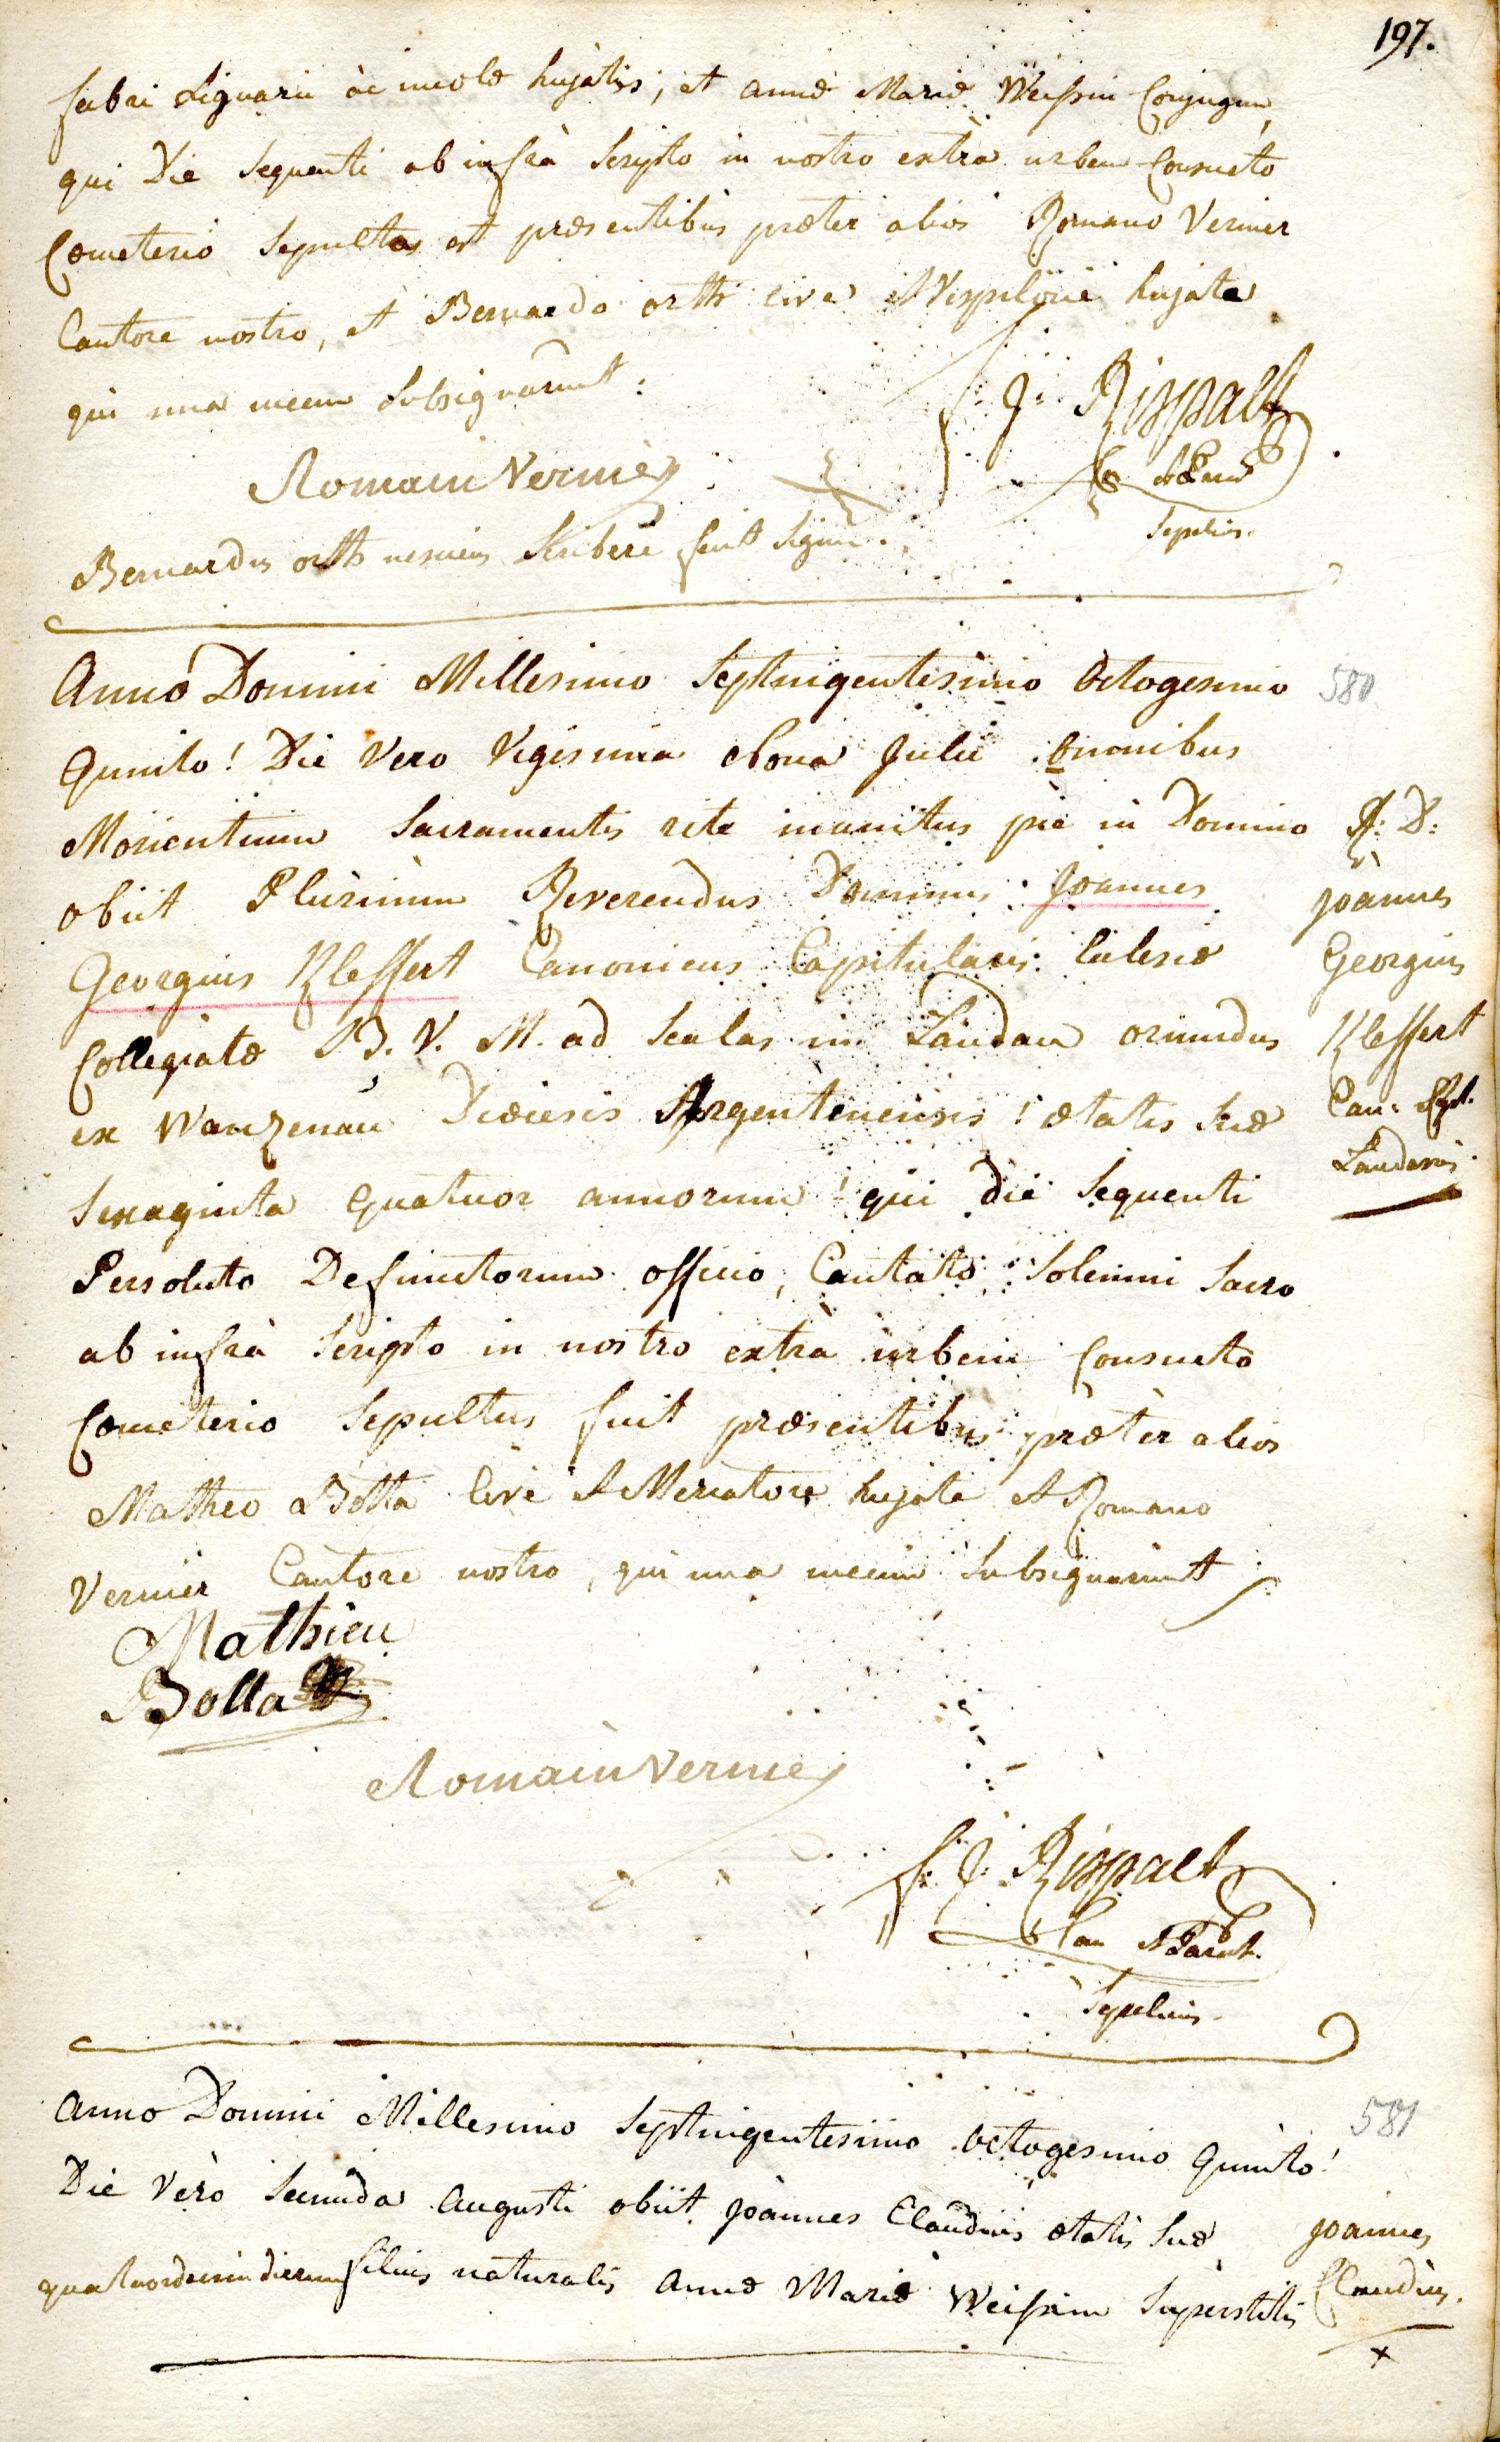 197.
fabri Lignarii ac incolæ hujatis; et annæ Mariæ Weissin Conjugum,
qui Die Sequenti ab infrà Scripto in nostro extrà urbem Consueto
Cœmeterio Sepultus est præsentibus præter alios Romano Vernier
Cantore nostro, et Bernardo orth cive et Vespilone hujate
qui una mecum Subsignarunt:
f: J: Rispalt
Romain Vernier
Sepeliens.
Bernardus orth nescius Scribere fecit Signum.
Anno Domini Millesimo Septingentesimo Octogesimo 580
Quinto! Die Vero Vigesima Nona Julii omnibus
Morientium Sacramentis rite munitus pie in Domino R: D:
obiit Plurimum Reverendus Dominus Joannes Joannes
Georgius Kleffert Canonicus Capitularis Eclesiæ Georgius
Collegiatæ B. V. M. ad Scalas in Landau oriundus Kleffert
ex Wanzenau Diœcesis Argentinensis! ætatis Suæ Can: Cpl.
Sexaginta Quatuor annorum! qui die Sequenti Landavii
Persoluto Defunctorum officio, Cantato Solemni Sacro
ab infrà Scripto in nostro extrà urbem Consueto
Cœmeterio Sepultus fuit præsentibus præter alios
Matheo Botta Cive et Mercatore hujate et Romano
Vernier Cantore nostro, qui una mecum Subsignarunt
Mathieu
Botta
Romain Vernier
f: J: Rispalt
Can et Paroch.
Sepeliens.
Anno Domini Millesimo Septingentesimo Octogesimo Quinto! 581
Die Vero Secunda Augusti obiit Joannes Claudius ætatis Suæ Joannes
quatuordecim dierum filius naturalis Annæ Mariæ Weissin Superstitis Claudius.
x